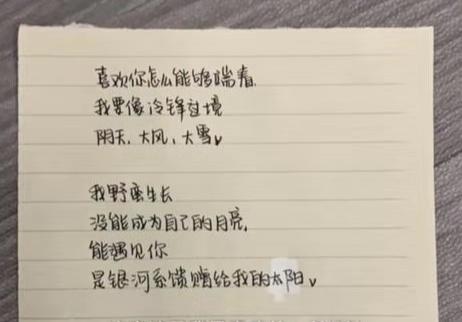 喜欢你怎么能够端着,
我要像冷锋过境
阴天,大风、大雪
我野蛮生长
没能成为自己的月亮,
能遇见你
是银河系馈赠给我的太阳